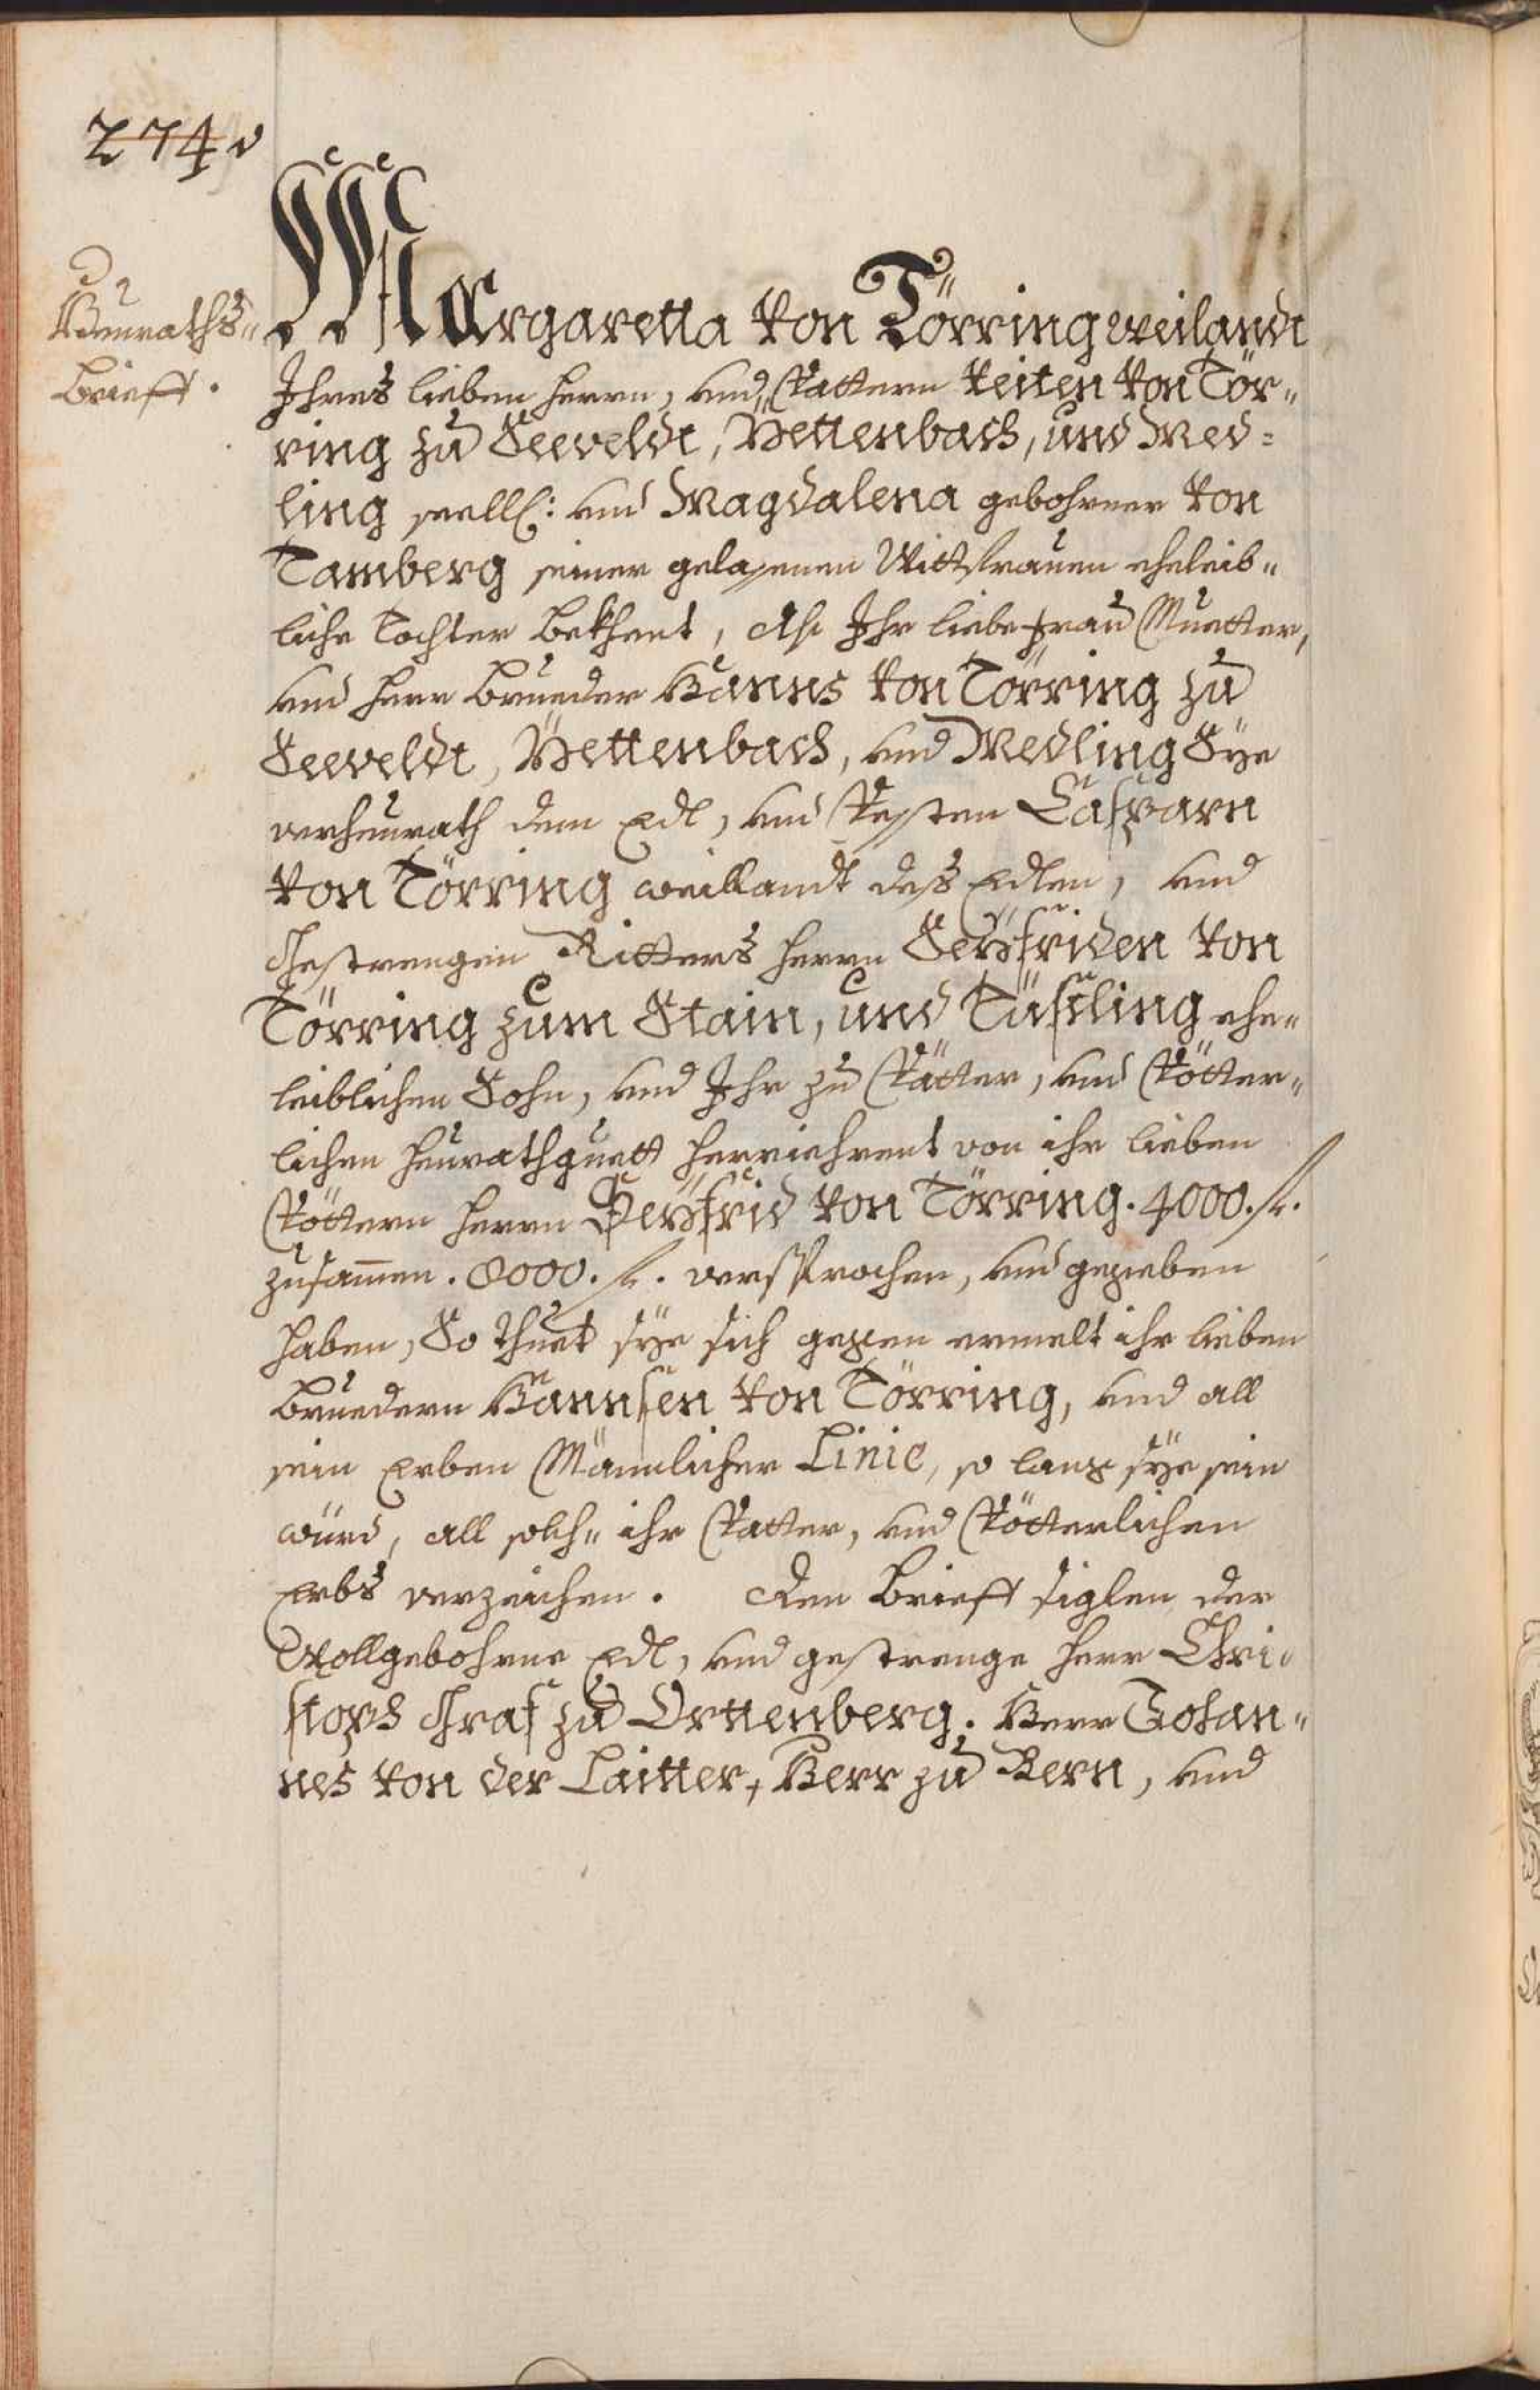 274 v
Heuraths-
Brieff.
Margaretta von Törring weilandt
Ihres lieben Herrn, und Vattern Veiten von Tör-
ring zu Seeveldt, Yettenbach, und Med-
ling seell: und Magdalena gebohrner von
Tamberg seiner gelassenen Wittfrauen eheleib-
liche Tochter bekhent, Als Ihr liebe Frau Muetter,
und Herr Brueder Hanns von Törring zu
Seeveldt, Yettenbach, und Medling Sÿe
verheurath dem Edl, und Vesten Casparn
von Törring weillandt dess Edlen, und
Gestrengen Ritters Herrn Seÿfriden von
Törring zum Stain, und Tüssling ehe-
leiblichen Sohn, und Ihr zu Vätter, und Vötter-
lichen Heurathguett herriehrent von ihr lieben
Vöttern Herrn Seÿfrid von Törring. 4000. fl.
zusamen. 8000. fl. versprochen, und gegeben
haben, So thuet sÿe sich gegen ermelt ihr lieben
Bruedern Hannsen von Törring, und all
sein Erben Männlicher Linie, so lang sÿe sein
würd, all solch- ihr Vatter, und Vötterlichen
Erbs verzeichen. Den Brieff siglen der
Wollgebohrne Edl, und gestrenge Herr Chri-
stoph Graf zu Orttenberg. Herr Johan-
nes von der Laitter, Herr zu Bern, und